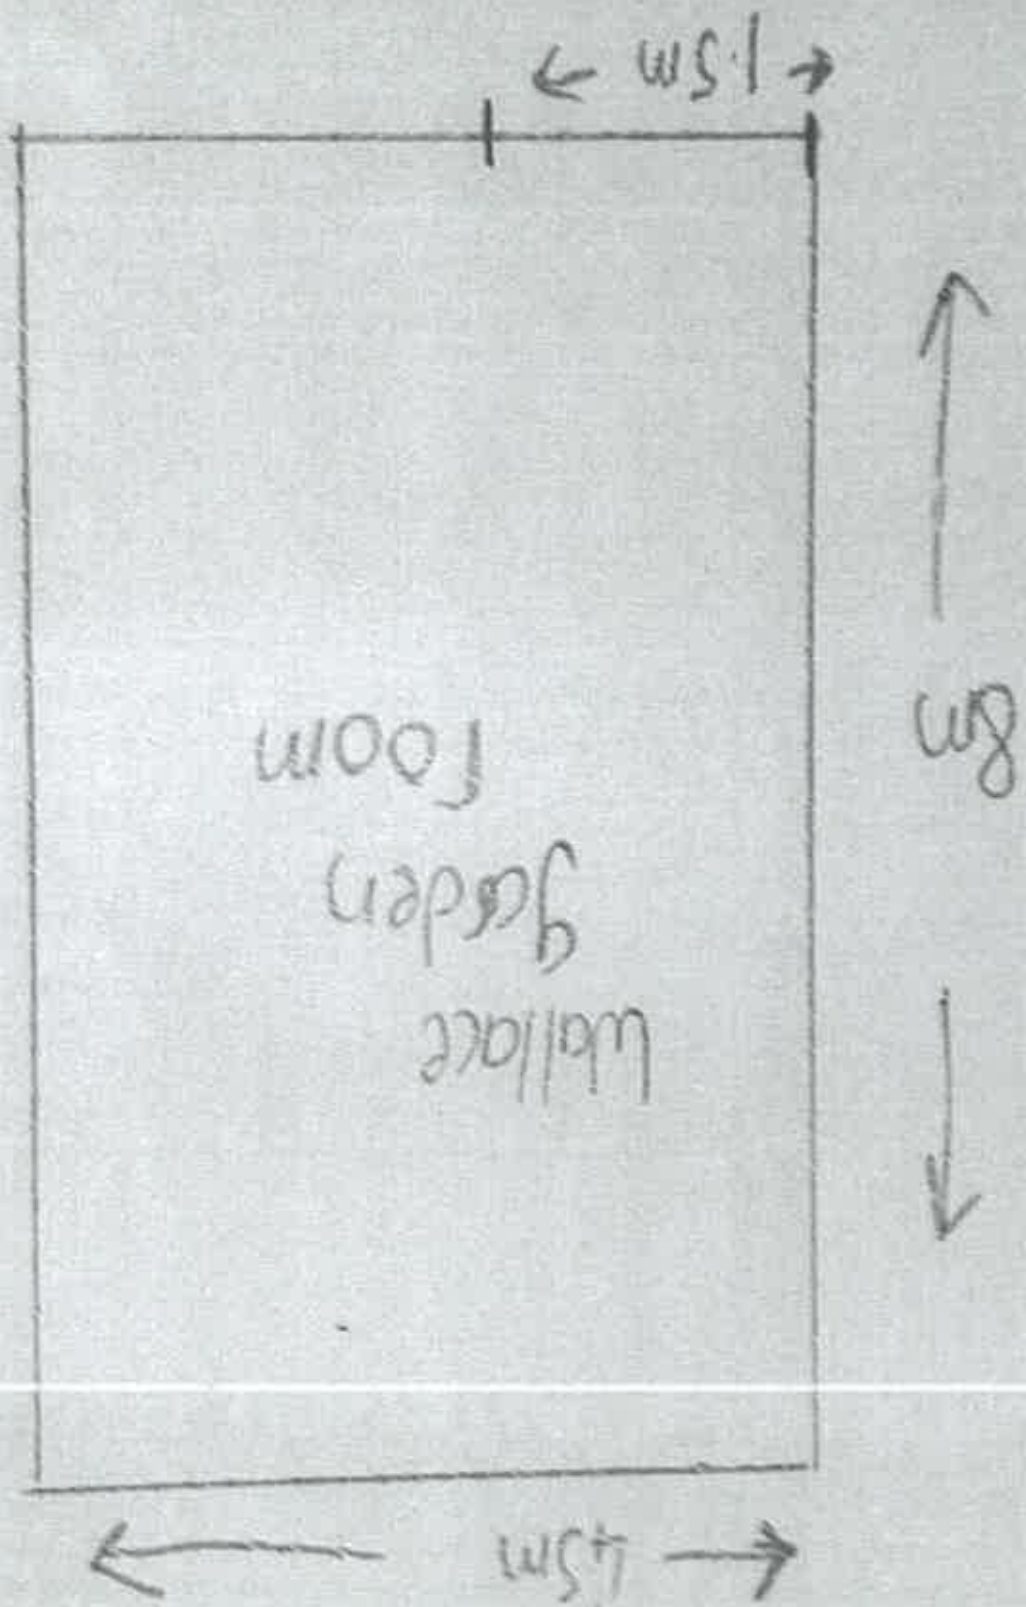 4.5m
Wallace
garden
room
8m
1.5m